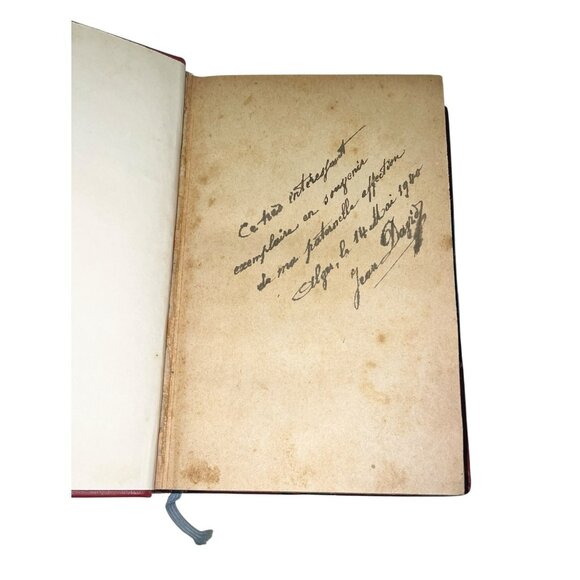 Ce très intéressant
exemplaire en souvenir
de ma paternelle affection
Alger, le 14 Mai 1940
Jean David